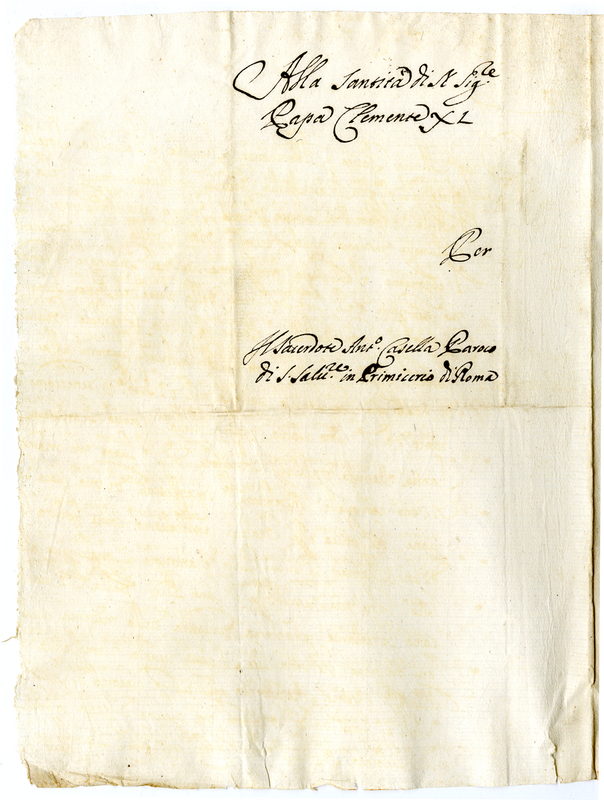 Alla Santità di N. Sig.re
Papa Clemente XI
Per
Il Sacerdote Ant.o Casella Paroco
di S. Salu.re in Primicerio di Roma